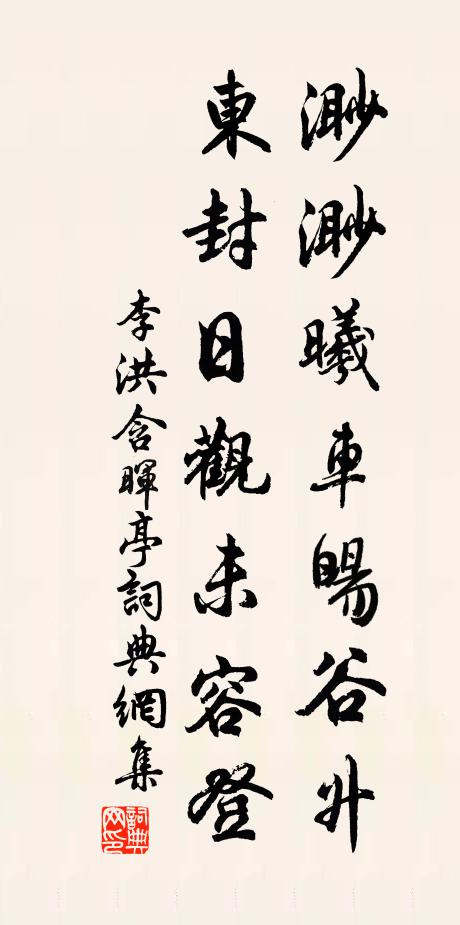 渺渺曦車暘谷升
東封日觀未容登
李洪含暉亭詞典網集
詞典網印